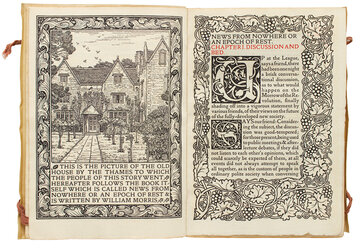 THIS IS THE PICTURE OF THE OLD
HOUSE BY THE THAMES TO WHICH
THE PEOPLE OF THIS STORY WENT
HEREAFTER FOLLOWS THE BOOK IT-
SELF WHICH IS CALLED NEWS FROM
NOWHERE OR AN EPOCH OF REST &
IS WRITTEN BY WILLIAM MORRIS
NEWS FROM NOWHERE OR
AN EPOCH OF REST.
CHAPTER I. DISCUSSION AND
BED.
UP at the League,
says a friend, there
had been one night
a brisk conversa-
tional discussion,
as to what would
happen on the
Morrow of the Re-
volution, finally
shading off into a vigorous statement
by various friends, of their views on the future
of the fully-developed new society.
SAYS our friend: Consider-
ing the subject, the discus-
sion was good-tempered;
for those present, being used
to public meetings & after-
lecture debates, if they did
not listen to each other's opinions, which
could scarcely be expected of them, at all
events did not always attempt to speak
all together, as is the custom of people in
ordinary polite society when conversing